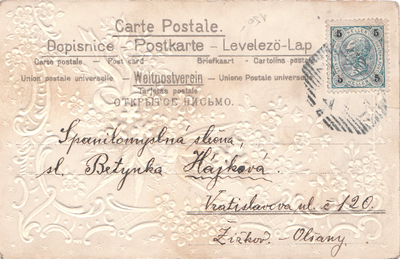 Carte Postale.
Dopisnice - Postkarte - Levelező-Lap
Carte postale. - Post card - Briefkaart - Cartolina postale
Union postale universelle - Weltpostverein - Unione Postale universale
Tarjeta postale
ОТКРЫТОЕ ПИСЬМО.
5 5
5 5
Spanilomyslná slečna,
sl. Betynka Hájková.
Vratislavova ul. č 120.
Žižkov - Olšany.